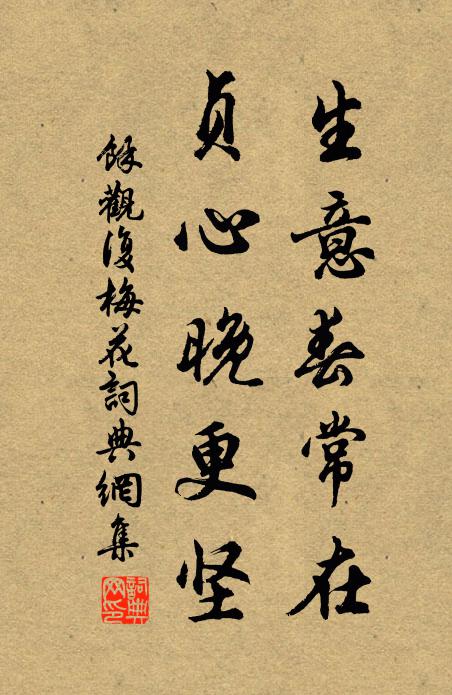 生意春常在
貞心晚更坚
餘觀復梅花詞典網集
詞典网印